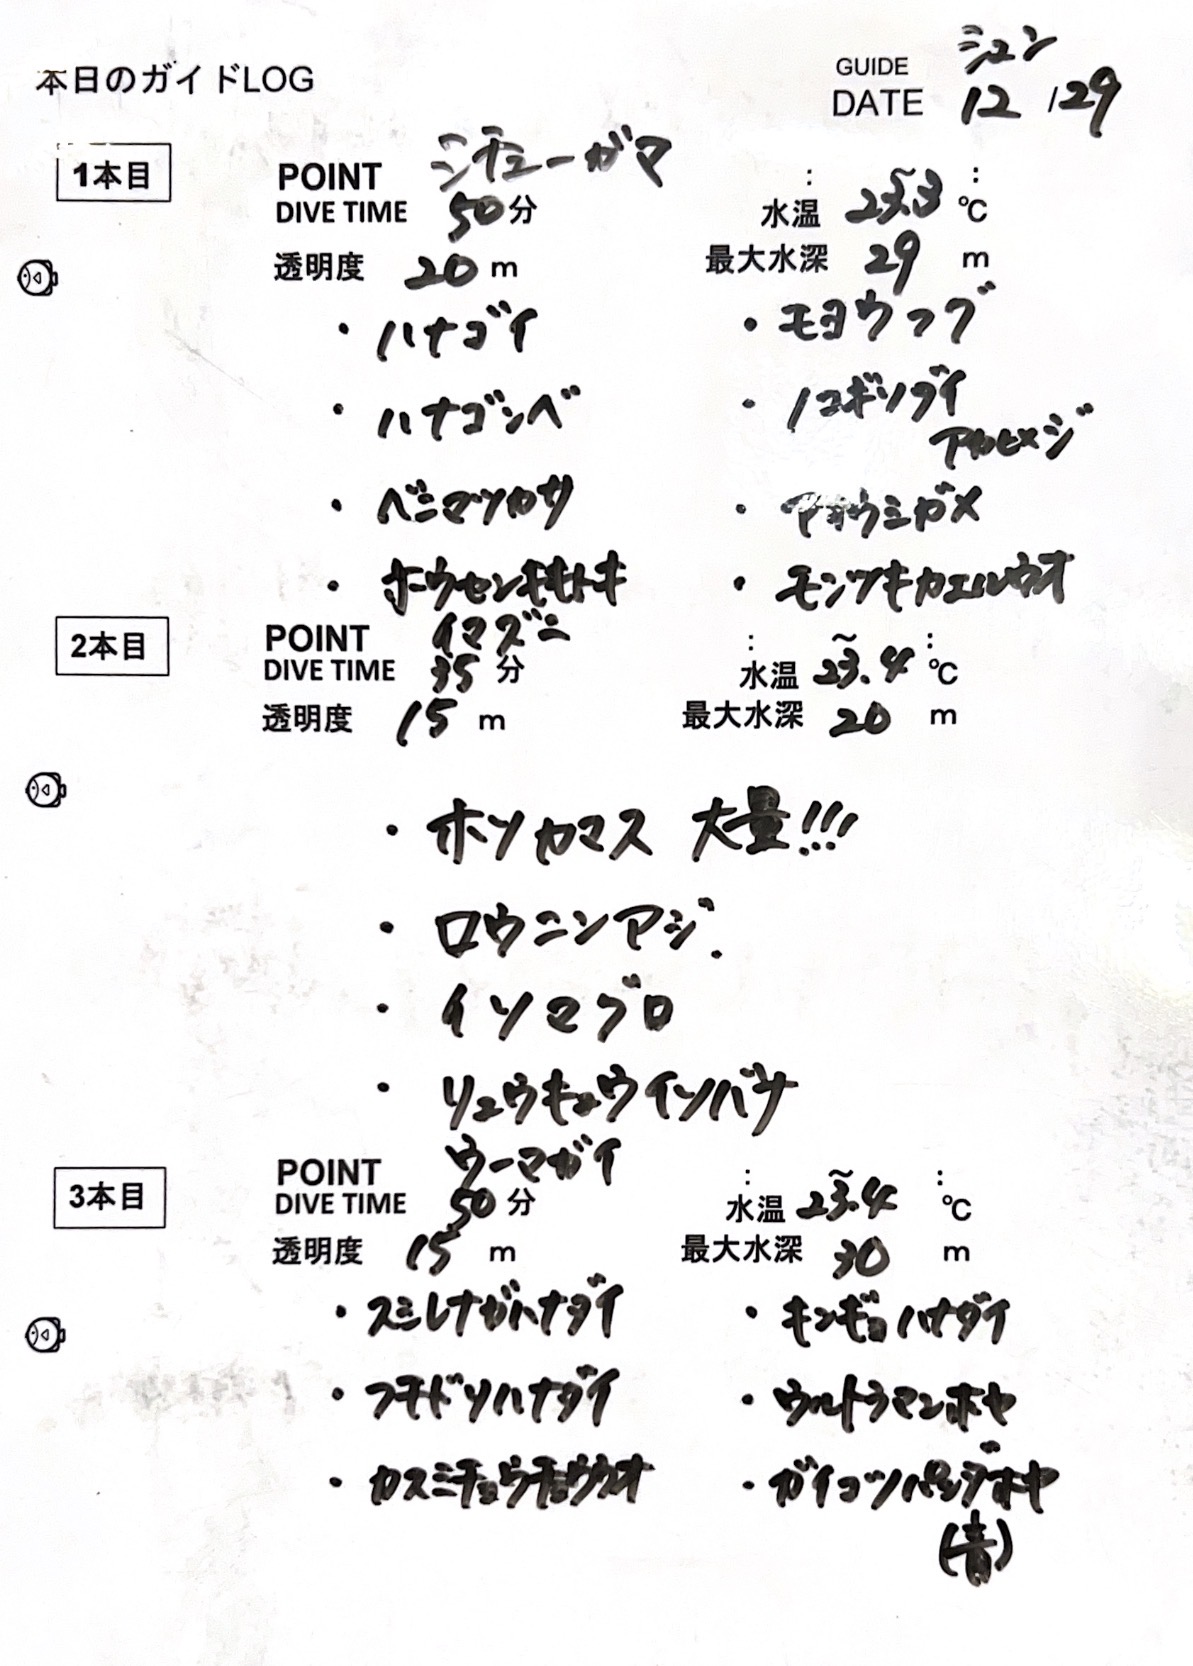 本日のガイドLOG
GUIDE シュン
DATE 12 /29
1本目
POINT シチューガマ
DIVE TIME 50分
: ~ :
水温 23.3 ℃
透明度 20 m
最大水深 29 m
・ハナゴイ
・モヨウフグ
・ハナゴンベ
・ノコギリダイ
アカヒメジ
・ベニマツカサ
・アオウミガメ
・ホウセンキントキ
・モンツキカエルウオ
2本目
POINT イマズニ
DIVE TIME 35 分
: ~ :
水温 23.4 ℃
透明度 15 m
最大水深 20 m
・ホソカマス 大量!!!
・ロウニンアジ.
・イソマグロ
・リュウキュウイソバナ
3本目
POINT ウーマガイ
DIVE TIME 50 分
: ~ :
水温 23.4 ℃
透明度 15 m
最大水深 30 m
・スミレナガハナダイ
・キンギョハナダイ
・フチドリハナダイ
・ウルトラマンホヤ
・カスミチョウチョウウオ
・ガイコツパンダホヤ
(青)